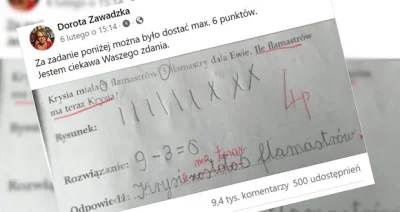 Dorota Zawadzka
6 lutego o 15:14
Za zadanie poniżej można było dostać max. 6 punktów.
Jestem ciekawa Waszego zdania.
Krysia miała 9 flamastrów. 3 flamastry dała Ewie. Ile flamastrów
ma teraz Krysia?
Rysunek:
4p
Rozwiązanie: 9-3=6
ma teraz
Odpowiedź: Krysie zostało 6 flamastrów.
9,4 tys. komentarzy 500 udostępnień